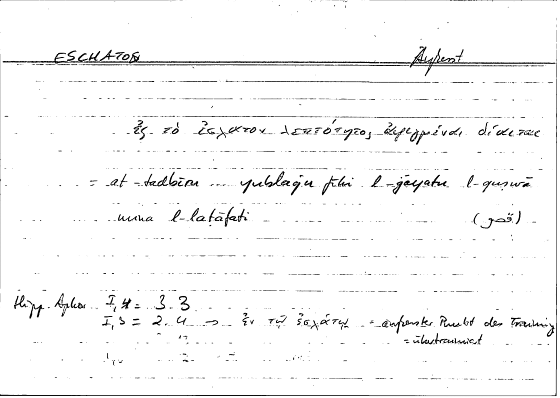 ESCHATON
ἐς τὸ ἔσχατον λεπτότητος ἀφιγμέναι δίαιται
= at-tadbīru ... yublaġu fīhi l-ġāyatu l-quṣwā
mina l-laṭāfati (قصو)
Hipp. Aphor. I,4 = 3.3
I,3 = 2.4 → ἐν τῷ ἐσχάτῳ = äußerster Punkt des Training
= übertrainiert